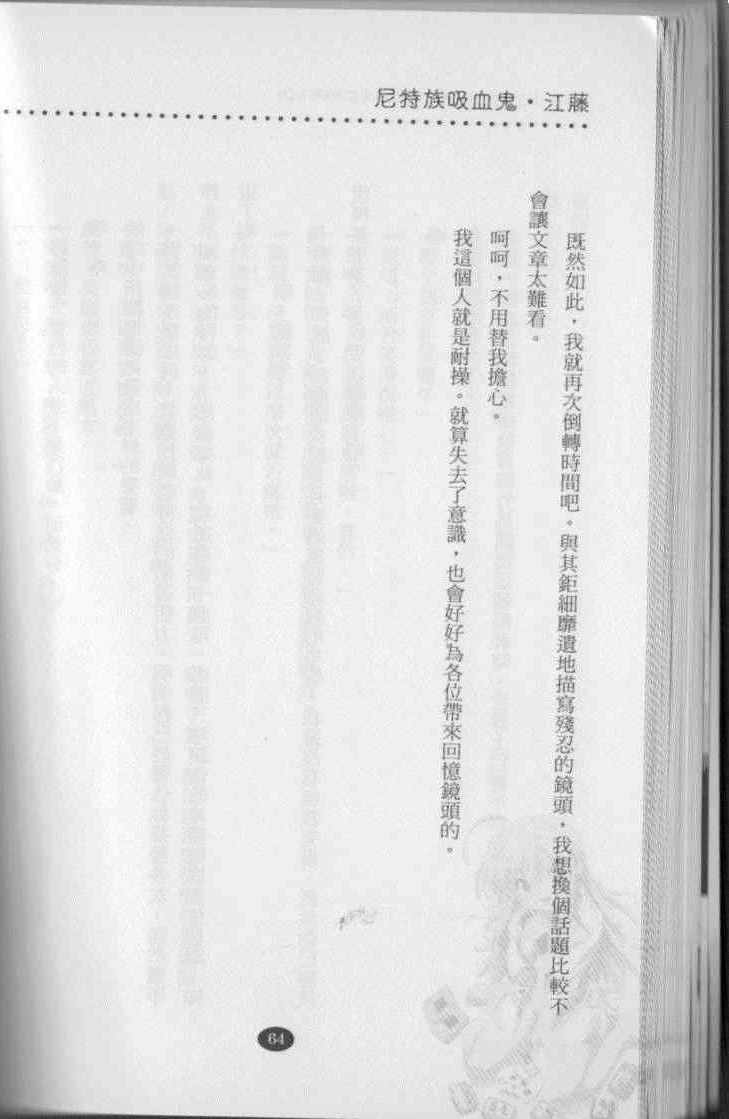 尼特族吸血鬼・江藤
既然如此，我就再次倒轉時間吧。與其鉅細靡遺地描寫殘忍的鏡頭，我想換個話題比較不
會讓文章太難看。
呵呵，不用替我擔心。
我這個人就是耐操。就算失去了意識，也會好好為各位帶來回憶鏡頭的。
64